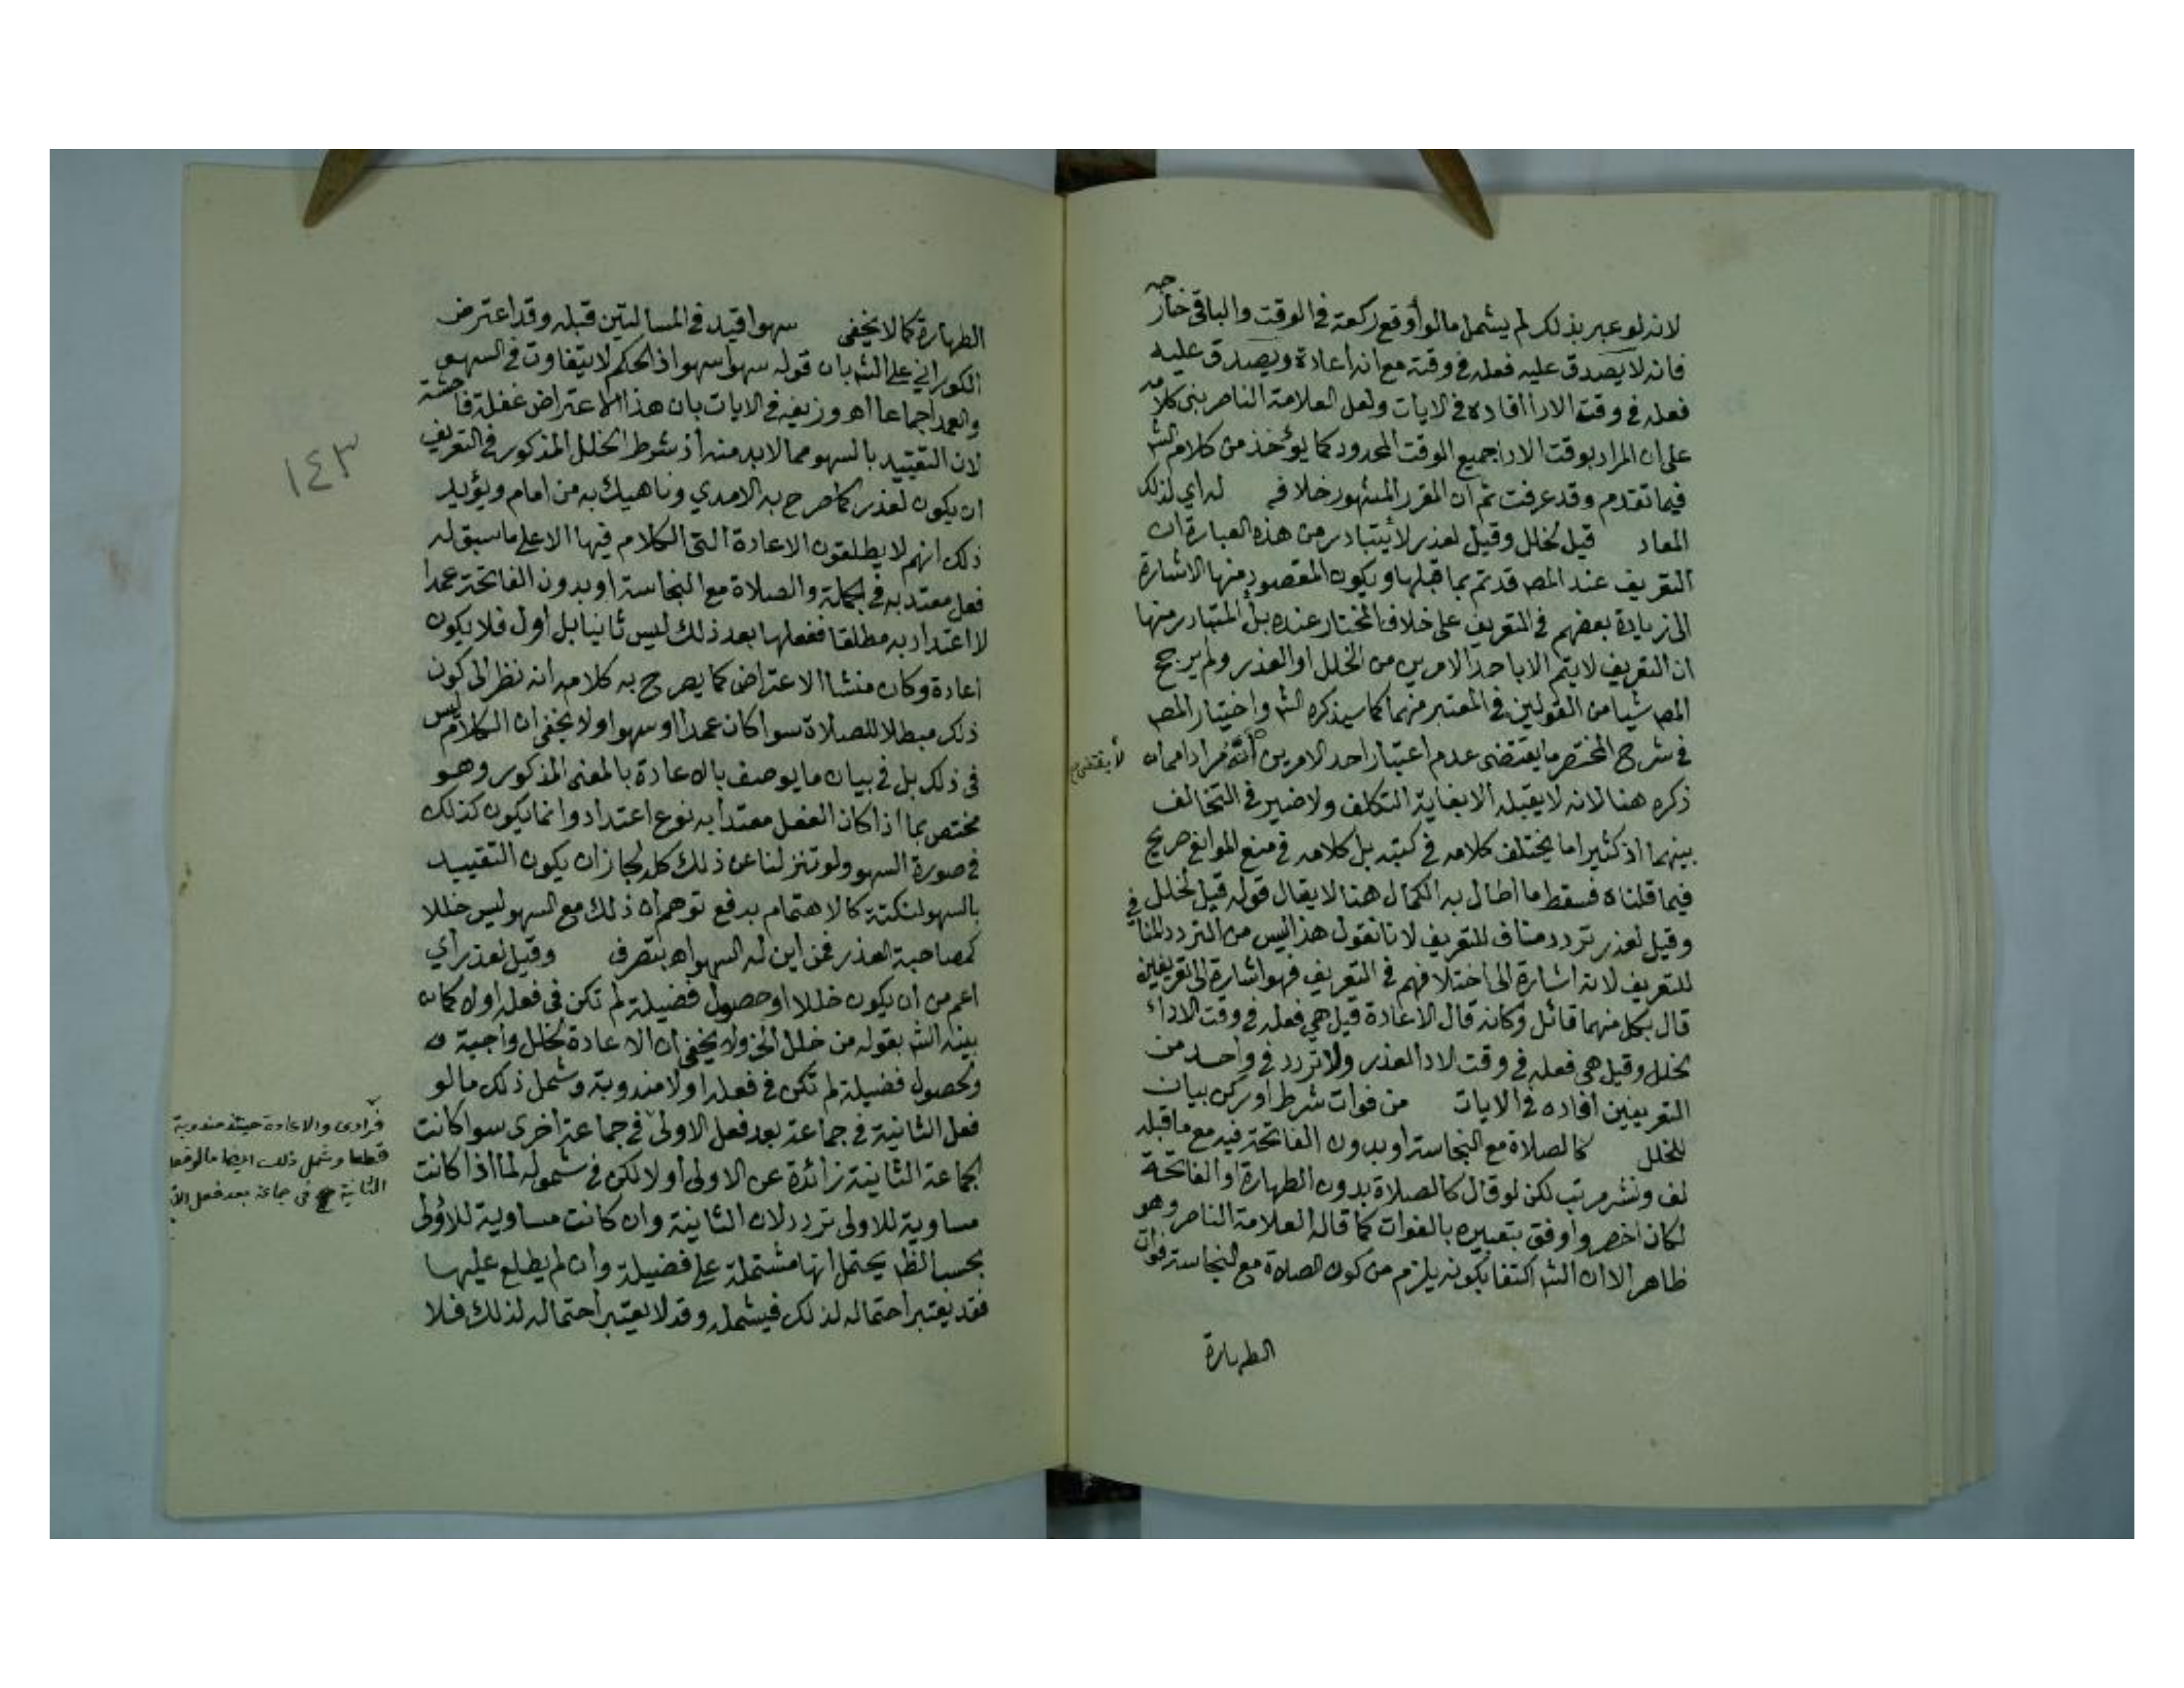 لانه لو عبر بذلك لم يشمل ما لو أوقع ركعة في الوقت والباقي خارجه
فانه لا يصدق عليه فعله في وقته مع انه اعادة ويصدق عليه
فعله في وقت الادا افاده في الايات ولعل العلامة الناصر بنى كلامه
على ان المراد بوقت الادا جميع الوقت المحدود كما يؤخذ من كلام الشـ
فيما تقدم وقد عرفت ثم ان المقرر المشهور خلافه له اي لذلك
المعاد قيل لخلل وقيل لعذر لا يتبادر من هذه العبارة ان
التعريف عند المصـ قد تم بما قبلها ويكون المقصود منها الاشارة
الى زيادة بعضهم في التعريف على خلاف المختار عنده بل المتبادر منها
ان التعريف لا يتم الا باحد الامرين من الخلل او العذر ولم يرجح
المصـ شيا من القولين في المعتبر منهما كما سيذكره الشـ واختيار المصـ
في شرح المختصر ما يقتضى عدم اعتبار احد الامرين لا يقتضى انه مراد مما
ذكره هنا لانه لا يقبله الا بغاية التكلف ولا ضير في التخالف
بينهما اذ كثيرا ما يختلف كلامه في كتبه بل كلامه في منع الموانع صريح
فيما قلناه فسقط ما اطال به الكمال هنا لا يقال قوله قيل لخلل
وقيل لعذر تردد مناف للتعريف لانا نقول هذا ليس من التردد المنافي
للتعريف لانه اشارة الى اختلافهم في التعريف فهو اشارة الى تعريفين
قال بكل منهما قائل وكانه قال الاعادة قيل هي فعله في وقت الاداء
لخلل وقيل هي فعله في وقت الادا لعذر ولا تردد في واحد من
التعريفين افاده في الايات من فوات شرط او ركن بيان
للخلل كالصلاة مع النجاسة او بدون الفاتحة فيه مع ما قبله
لف ونشر مرتب لكن لو قال كالصلاة بدون الطهارة او الفاتحة
لكان اخصر واوفق بتعبيره بالفوات كما قاله العلامة الناصر وهو
ظاهر الا ان الشـ اكتفا بكونه يلزم من كون الصلاة مع النجاسة فوات
الطهارة
الطهارة كما لا يخفى سهوا قيد في المسالتين قبله وقد اعترض
الكوراني على الشـ بان قوله سهوا سهو اذ الحكم لا يتفاوت في السهو
والعمد اجماعا اهـ وزيفه في الايات بان هذا الاعتراض غفلة فاحشة
لان التقييد بالسهو مما لا بد منه اذ شرط الخلل المذكور في التعريف
ان يكون لعذر كما صرح به الامدي وناهيك به من امام ويؤيد
ذلك انهم لا يطلقون الاعادة التي الكلام فيها الا على ما سبق له
فعل معتد به في الجملة والصلاة مع النجاسة او بدون الفاتحة عمدا
لا اعتداد به مطلقا ففعلها بعد ذلك ليس ثانيا بل اول فلا يكون
اعادة وكان منشا الاعتراض كما يصرح به كلامه انه نظر الى كون
ذلك مبطلا للصلاة سوا كان عمدا او سهوا ولا يخفى ان الكلام ليس
في ذلك بل في بيان ما يوصف بالاعادة بالمعنى المذكور وهو
مختص بما اذا كان الفعل معتدا به نوع اعتداد وانما يكون كذلك
في صورة السهو ولو تنزلنا عن ذلك كله لجاز ان يكون التقييد
بالسهو لنكتة كالاهتمام بدفع توهم ان ذلك مع السهو ليس خللا
لمصاحبة العذر فمن اين له السهو اهـ بتصرف وقيل لعذر اي
اعم من ان يكون خللا او حصول فضيلة لم تكن في فعله اولا كما
بينه الشـ بقوله من خلل الخ ولا يخفى ان الاعادة لخلل واجبة
ولحصول فضيلة لم تكن في فعله اولا مندوبة وشمل ذلك ما لو
فعل الثانية في جماعة بعد فعل الاولى في جماعة اخرى سوا كانت
الجماعة الثانية زائدة عن الاولى أو لا لكن في شموله لما اذا كانت
مساوية للاولى تردد لان الثانية وان كانت مساوية للاولى
بحسب الظـ يحتمل انها مشتملة على فضيلة وان لم يطلع عليها
فقد يعتبر احتماله لذلك فيشمله وقد لا يعتبر احتماله لذلك فلا
فرادى والاعادة حينئذ مندوبة
قطعا وشمل ذلك ايضا ما لو فعل
الثانية في جماعة بعد فعل
١٤٣